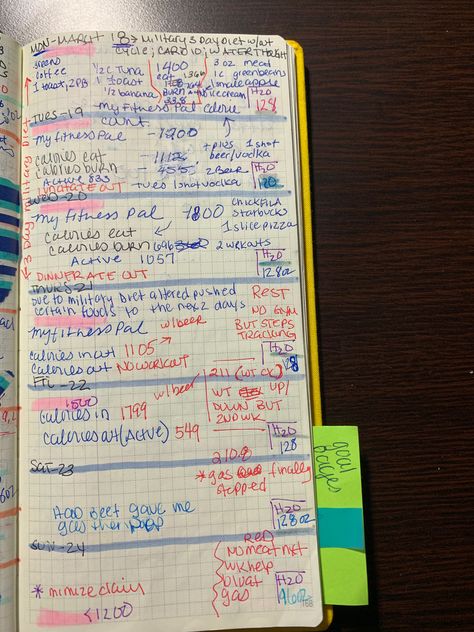 MON-MARCH 18 → Military 3 Day Diet w/wt
cycle; CARDIO; WATER THROUGH
greens
coffee
1 toast, 2PB
1/2 c Tuna
1 toast
1/2 banana
1400
eat
BURN
338
3 oz meat
1 c greenbeans
1 small apple
ice cream
H2O
128
TUES-19
my fitness Pal calorie
count
my fitness Pal - 1200
calories eat - 1112
calories burn - 455
Active 833
+ plus 1 shot
beer/vodka
2 Beer
Tues 1 shot vodka
H2O
120
ate out
WED-20
3 Day Military Diet
my fitness Pal 1800
calories eat
calories burn 696
Active 1057
chickfila
starbucks
1 slice pizza
2 workouts
H2O
128oz
DINNER ATE OUT
THURS 21
Due to military Diet altered pushed
certain foods to the next 2 days
REST
NO GYM
BUT STEPS
TRACKING
my fitness Pal
w/beer
calories in at 1105
calories out NO WORKOUT
H2O
128
Fri-22
1500
w/beer
calories in 1799
calories at (Active) 549
211 (WT CK)
WT UP/
DOWN BUT
2ND WK
H2O
128
SAT-23
210.8
* gas finally
stopped
Had Beet gave me
gas then poop
H2O
128oz
SUN-24
RED
NO meat nxt
wk help
bloat
gas
* minimize dairy
<1200
H2O
96oz
168
goal
pages